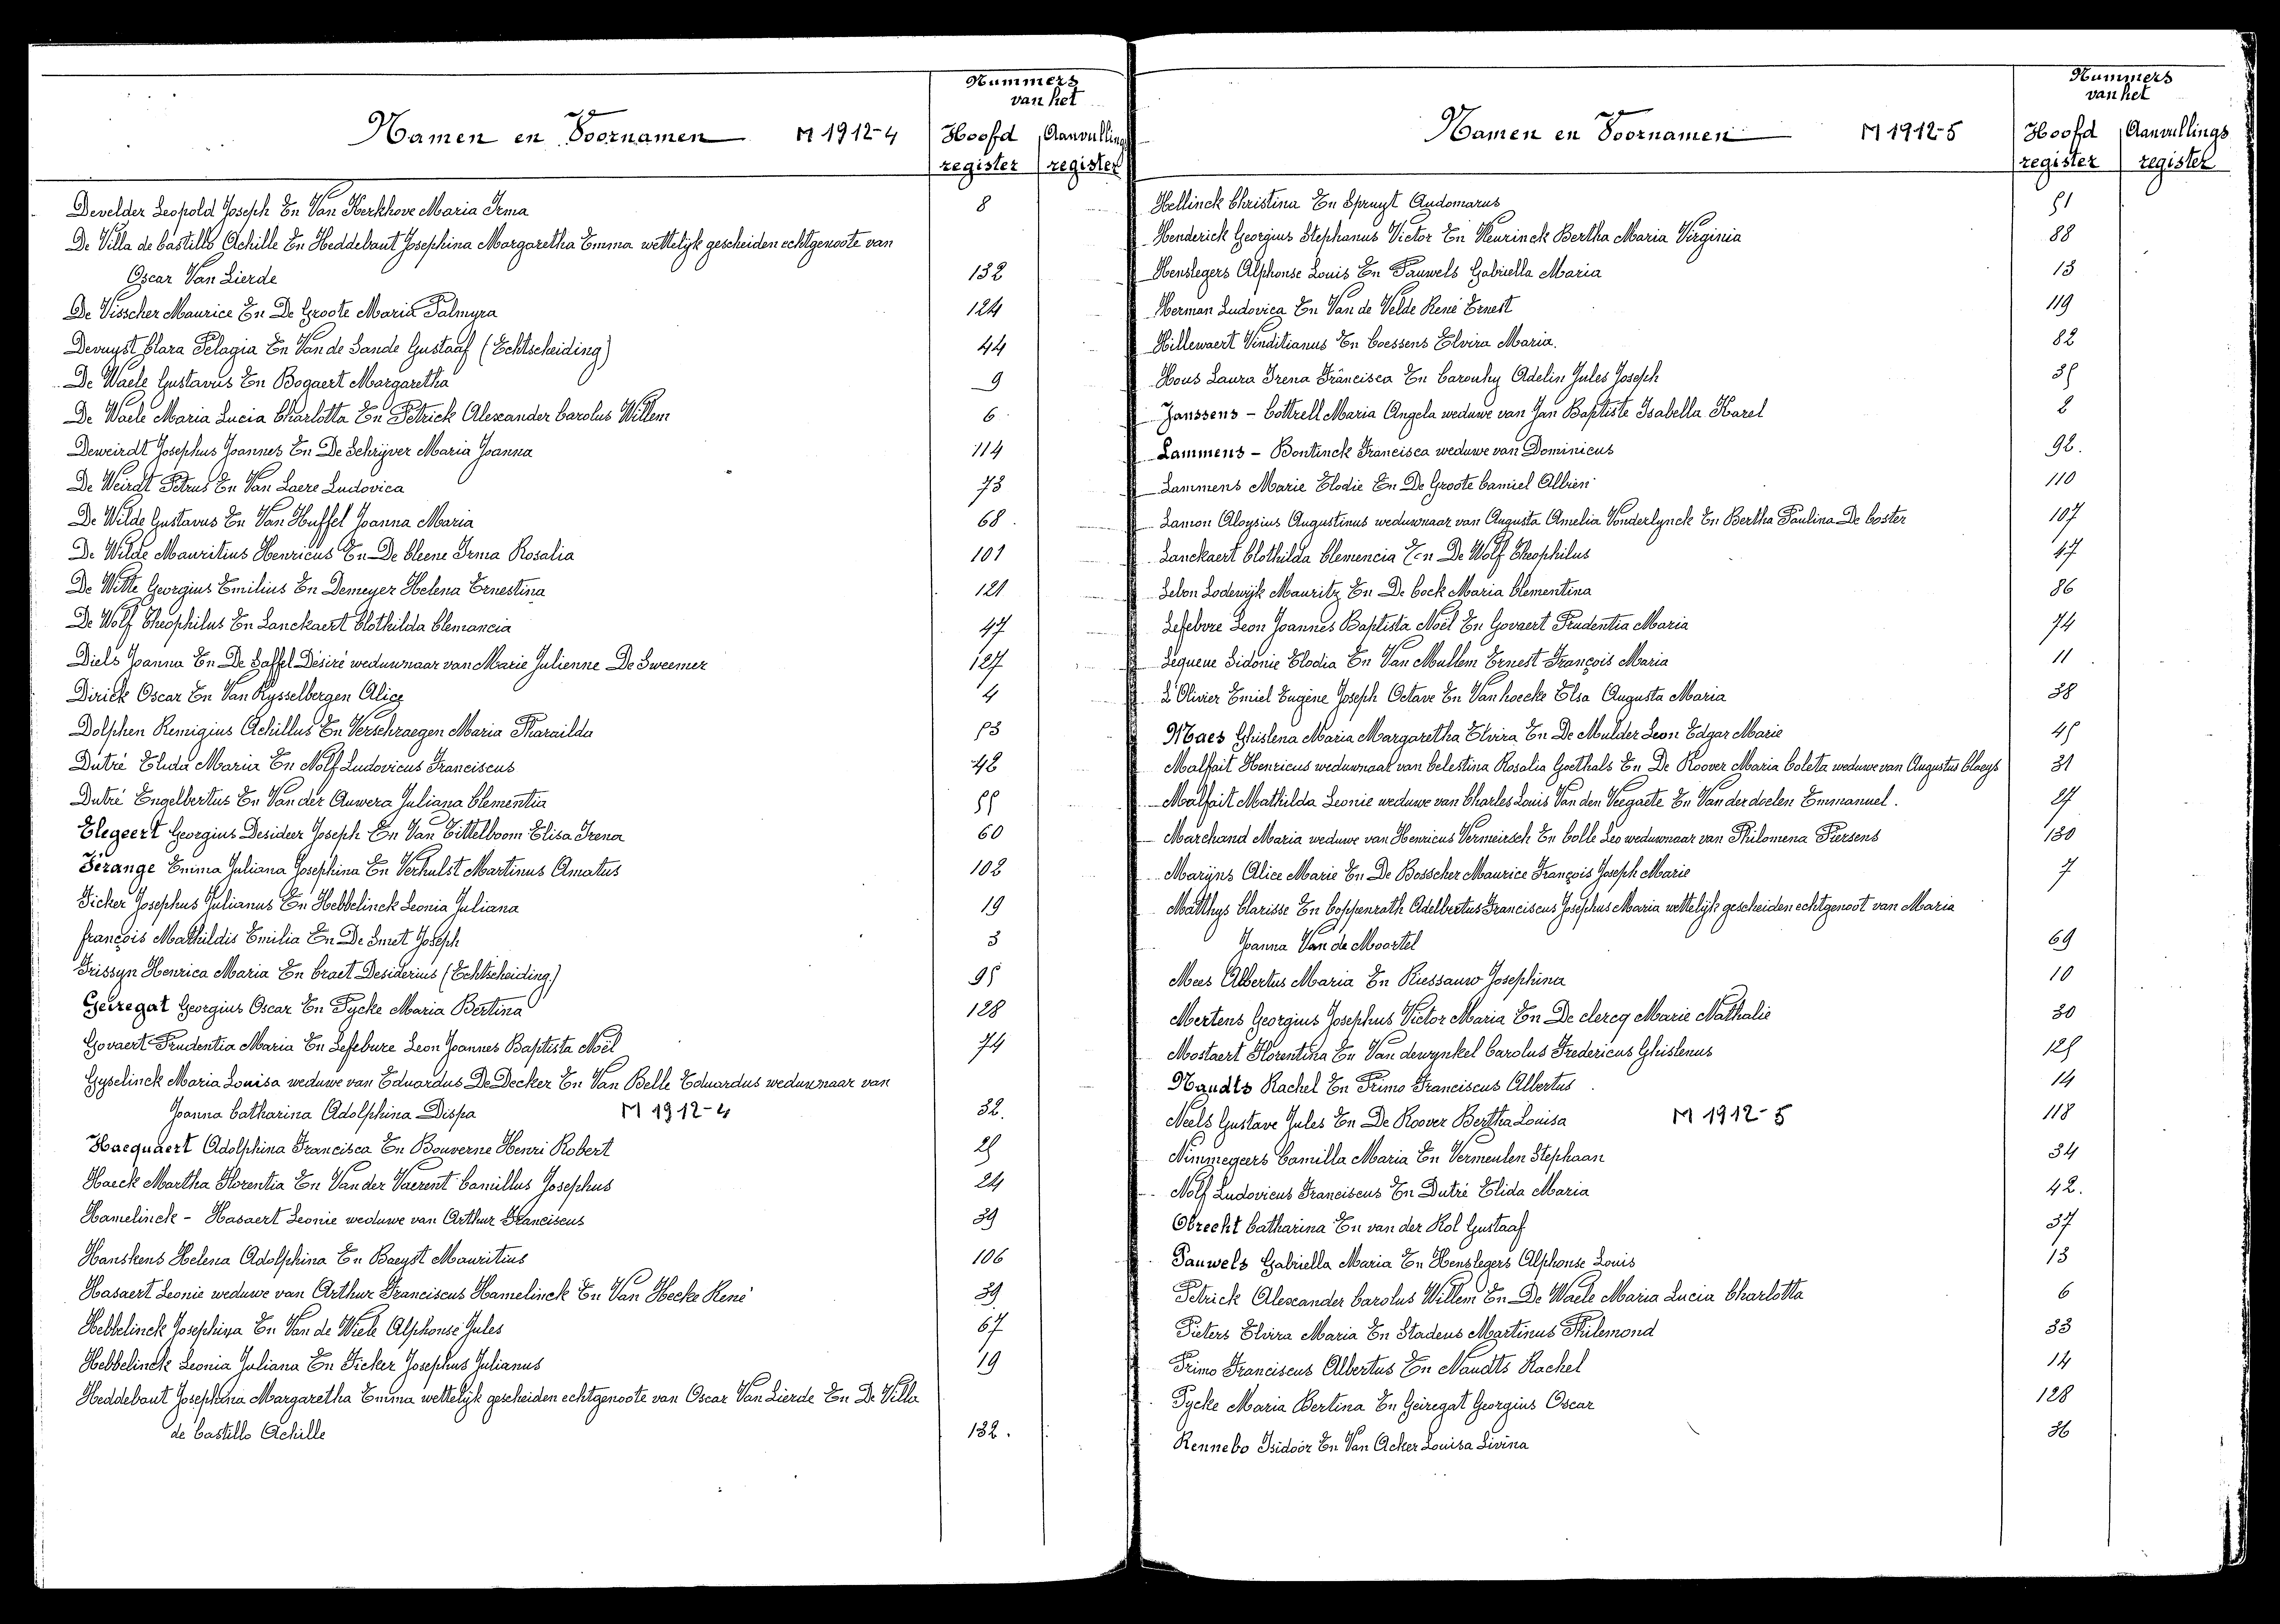 Nummers
van het
Namen en Voornamen M 1912-4 Hoofd Aanvullings
register register
Develder Leopold Joseph En Van Kerkhove Maria Irma 8
De Villa de Castillo Achille En Heddebaut Josephina Margaretha Emma wettelijk gescheiden echtgenoote van
Oscar Van Lierde 132
De Visscher Maurice En De Groote Maria Palmyra 124
Devuyst Clara Pelagia En Van de Sande Gustaaf (Echtscheiding) 44
De Waele Gustavus En Bogaert Margaretha 9
De Waele Maria Lucia Charlotta En Petrick Alexander Carolus Willem 6
Deweirdt Josephus Joannes En De Schrijver Maria Joanna 114
De Weirdt Petrus En Van Laere Ludovica 73
De Wilde Gustavus En Van Huffel Joanna Maria 68
De Wilde Mauritius Henricus En De Cleene Irma Rosalia 101
De Witte Georgius Emilius En Demeyer Helena Ernestina 121
De Wolf Theophilus En Lanckaert Clothilda Clemancia 47
Diels Joanna En De Saffel Désiré weduwnaar van Marie Julienne De Sweemer 127
Dirick Oscar En Van Rysselbergen Alice 4
Dolphen Remigius Achillus En Verschraegen Maria Pharailda 53
Dutré Elida Maria En Nolf Ludovicus Franciscus 42
Dutré Engelbertus En Van der Auwera Juliana Clementia 55
Elegeert Georgius Desideer Joseph En Van Tittelboom Elisa Irena 60
Férange Emma Juliana Josephina En Verhulst Martinus Amatus 102
Ficker Josephus Julianus En Hebbelinck Leonia Juliana 19
françois Mathildis Emilia En De Smet Joseph 3
Frissyn Henrica Maria En Craet Desiderius (Echtscheiding) 95
Geiregat Georgius Oscar En Pycke Maria Bertina 128
Govaert Prudentia Maria En Lefebvre Leon Joannes Baptista Noël 74
Gyselinck Maria Louisa weduwe van Eduardus De Decker En Van Belle Eduardus weduwnaar van
Joanna Catharina Adolphina Dispa M 1912-4 32.
Hacquaert Adolphina Francisca En Bouverne Henri Robert 25
Haeck Martha Florentia En Van der Vaerent Camillus Josephus 24
Hamelinck - Hasaert Leonie weduwe van Arthur Franciscus 39
Hanskens Helena Adolphina En Baeyst Mauritius 106
Hasaert Leonie weduwe van Arthur Franciscus Hamelinck En Van Hecke René 39
Hebbelinck Josephina En Van de Wiele Alphonse Jules 67
Hebbelinck Leonia Juliana En Ficker Josephus Julianus 19
Heddebaut Josephina Margaretha Emma wettelijk gescheiden echtgenoote van Oscar Van Lierde En De Villa
de Castillo Achille 132.
Nummers
van het
Namen en Voornamen M 1912-5 Hoofd Aanvullings
register register
Hellinck Christina En Spruyt Audomarus 51
Henderick Georgius Stephanus Victor En Heurinck Bertha Maria Virginia 88
Henslegers Alphonse Louis En Pauwels Gabriella Maria 13
Herman Ludovica En Van de Velde René Ernest 119
Hillewaert Vinditianus En Coessens Elvira Maria. 82
Hous Laura Irena Francisca En Carouhy Adelin Jules Joseph 35
Janssens - Cottrell Maria Angela weduwe van Jan Baptiste Isabella Karel 2
Lammens - Bontinck Francisca weduwe van Dominicus 92.
Lammens Marie Elodie En De Groote Camiel Albien 110
Lamon Aloysius Augustinus weduwnaar van Augusta Amelia Vonderlynck En Bertha Paulina De Coster 107
Lanckaert Clothilda Clemencia En De Wolf Theophilus 47
Lebon Lodewijk Mauritz En De Cock Maria Clementina 86
Lefebvre Leon Joannes Baptista Noël En Govaert Prudentia Maria 74
Lequeue Sidonie Elodia En Van Mullem Ernest François Maria 11
L'Olivier Emiel Eugène Joseph Octave En Vanhoecke Elsa Augusta Maria 38
Maes Ghislena Maria Margaretha Elvira En De Mulder Leon Edgar Marie 45
Malfait Henricus weduwnaar van Celestina Rosalia Goethals En De Roover Maria Coleta weduwe van Augustus Claeys 31
Malfait Mathilda Leonie weduwe van Charles Louis Van den Veegaete En Van der doelen Emmanuel. 27
Marchand Maria weduwe van Henricus Vermeirsch En Colle Leo weduwnaar van Philomena Piersens 130
Maryns Alice Marie En De Bosscher Maurice François Joseph Marie 7
Matthys Clarisse En Coppenrath Adelbertus Franciscus Josephus Maria wettelijk gescheiden echtgenoot van Maria
Joanna Van de Moortel 69
Mees Albertus Maria En Riessauw Josephina 10
Mertens Georgius Josephus Victor Maria En De clercq Marie Nathalie 30
Mostaert Florentina En Van dewynkel Carolus Fredericus Ghislenus 125
Naudts Rachel En Primo Franciscus Albertus 14
Neels Gustave Jules En De Roover Bertha Louisa M 1912-5 118
Nimmegeers Camilla Maria En Vermeulen Stephaan 34
Nolf Ludovicus Franciscus En Dutré Elida Maria 42.
Obrecht Catharina En van der Kol Gustaaf 37
Pauwels Gabriella Maria En Henslegers Alphonse Louis 13
Petrick Alexander Carolus Willem En De Waele Maria Lucia Charlotta 6
Pieters Elvira Maria En Stadeus Martinus Philemond 33
Primo Franciscus Albertus En Naudts Rachel 14
Pycke Maria Bertina En Geiregat Georgius Oscar 128
Rennebo Isidoor En Van Acker Louisa Livina 36